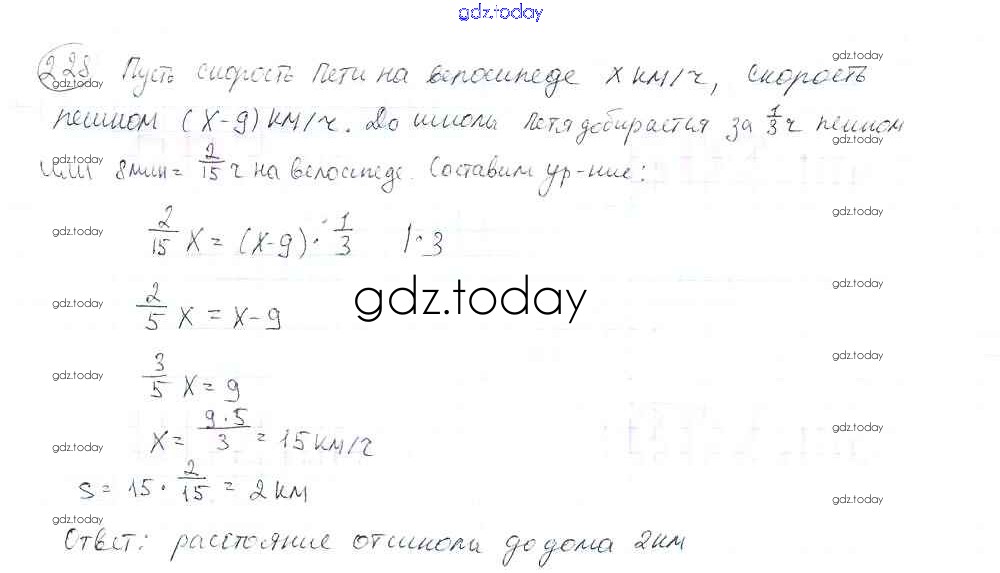 gdz.today
228 Пусть скорость Пети на велосипеде x км/ч, скорость
gdz.today
gdz.today
пешком (x-9) км/ч. До школы Петя добирается за 1/3 ч пешком
gdz.today
gdz.today
или 8мин = 2/15 ч на велосипеде. Составим ур-ние:
gdz.today
gdz.today
2/15 x = (x-9) · 1/3 |·3
gdz.today
gdz.today
gdz.today
2/5 x = x-9
gdz.today
gdz.today
3/5 x = 9
gdz.today
x = 9·5/3 = 15 км/ч
gdz.today
gdz.today
S = 15 · 2/15 = 2 км
gdz.today
gdz.today
Ответ: расстояние от школы до дома 2км